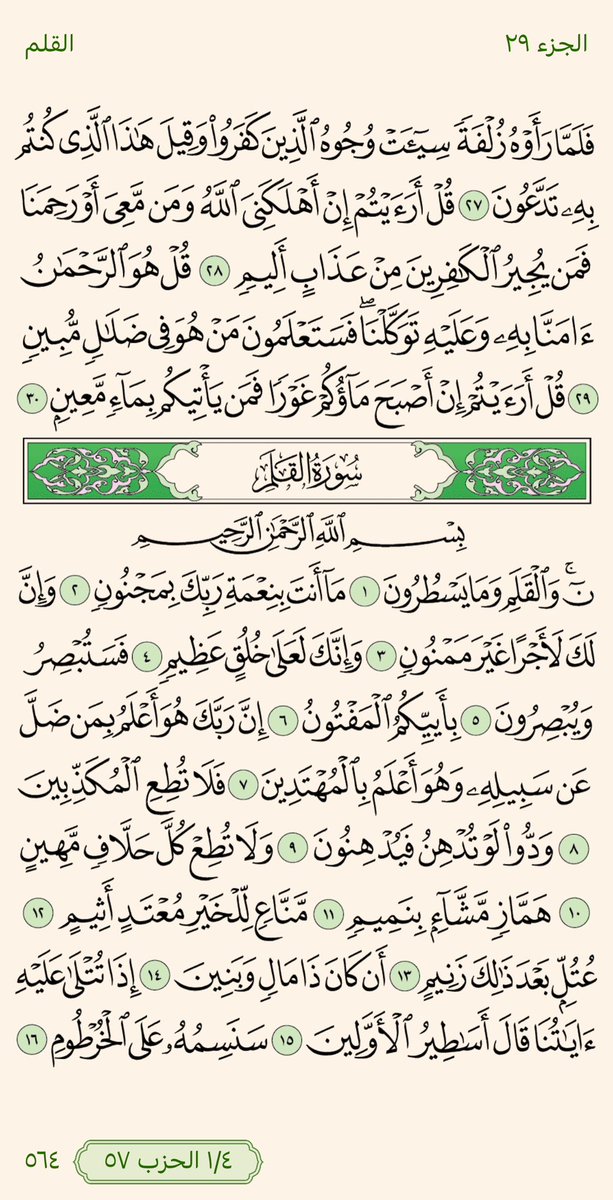 الجزء ٢٩
القلم
فَلَمَّا رَأَوۡهُ زُلۡفَةٗ سِيٓـَٔتۡ وُجُوهُ ٱلَّذِينَ كَفَرُواْ وَقِيلَ هَٰذَا ٱلَّذِي كُنتُم
بِهِۦ تَدَّعُونَ ٢٧ قُلۡ أَرَءَيۡتُمۡ إِنۡ أَهۡلَكَنِيَ ٱللَّهُ وَمَن مَّعِيَ أَوۡ رَحِمَنَا
فَمَن يُجِيرُ ٱلۡكَٰفِرِينَ مِنۡ عَذَابٍ أَلِيمٖ ٢٨ قُلۡ هُوَ ٱلرَّحۡمَٰنُ
ءَامَنَّا بِهِۦ وَعَلَيۡهِ تَوَكَّلۡنَاۖ فَسَتَعۡلَمُونَ مَنۡ هُوَ فِي ضَلَٰلٖ مُّبِينٖ
٢٩ قُلۡ أَرَءَيۡتُمۡ إِنۡ أَصۡبَحَ مَآؤُكُمۡ غَوۡرٗا فَمَن يَأۡتِيكُم بِمَآءٖ مَّعِينِۭ ٣٠
سُورَةُ القَلَمِ
بِسۡمِ ٱللَّهِ ٱلرَّحۡمَٰنِ ٱلرَّحِيمِ
نٓۚ وَٱلۡقَلَمِ وَمَا يَسۡطُرُونَ ١ مَآ أَنتَ بِنِعۡمَةِ رَبِّكَ بِمَجۡنُونٖ ٢ وَإِنَّ
لَكَ لَأَجۡرًا غَيۡرَ مَمۡنُونٖ ٣ وَإِنَّكَ لَعَلَىٰ خُلُقٍ عَظِيمٖ ٤ فَسَتُبۡصِرُ
وَيُبۡصِرُونَ ٥ بِأَييِّكُمُ ٱلۡمَفۡتُونُ ٦ إِنَّ رَبَّكَ هُوَ أَعۡلَمُ بِمَن ضَلَّ
عَن سَبِيلِهِۦ وَهُوَ أَعۡلَمُ بِٱلۡمُهۡتَدِينَ ٧ فَلَا تُطِعِ ٱلۡمُكَذِّبِينَ
٨ وَدُّواْ لَوۡ تُدۡهِنُ فَيُدۡهِنُونَ ٩ وَلَا تُطِعۡ كُلَّ حَلَّافٖ مَّهِينٍ
١٠ هَمَّازٖ مَّشَّآءِۭ بِنَمِيمٖ ١١ مَّنَّاعٖ لِّلۡخَيۡرِ مُعۡتَدٍ أَثِيمٍ ١٢
عُتُلِّۭ بَعۡدَ ذَٰلِكَ زَنِيمٍ ١٣ أَن كَانَ ذَا مَالٖ وَبَنِينَ ١٤ إِذَا تُتۡلَىٰ عَلَيۡهِ
ءَايَٰتُنَا قَالَ أَسَٰطِيرُ ٱلۡأَوَّلِينَ ١٥ سَنَسِمُهُۥ عَلَى ٱلۡخُرۡطُومِ ١٦
١/٤ الحزب ٥٧
٥٦٤